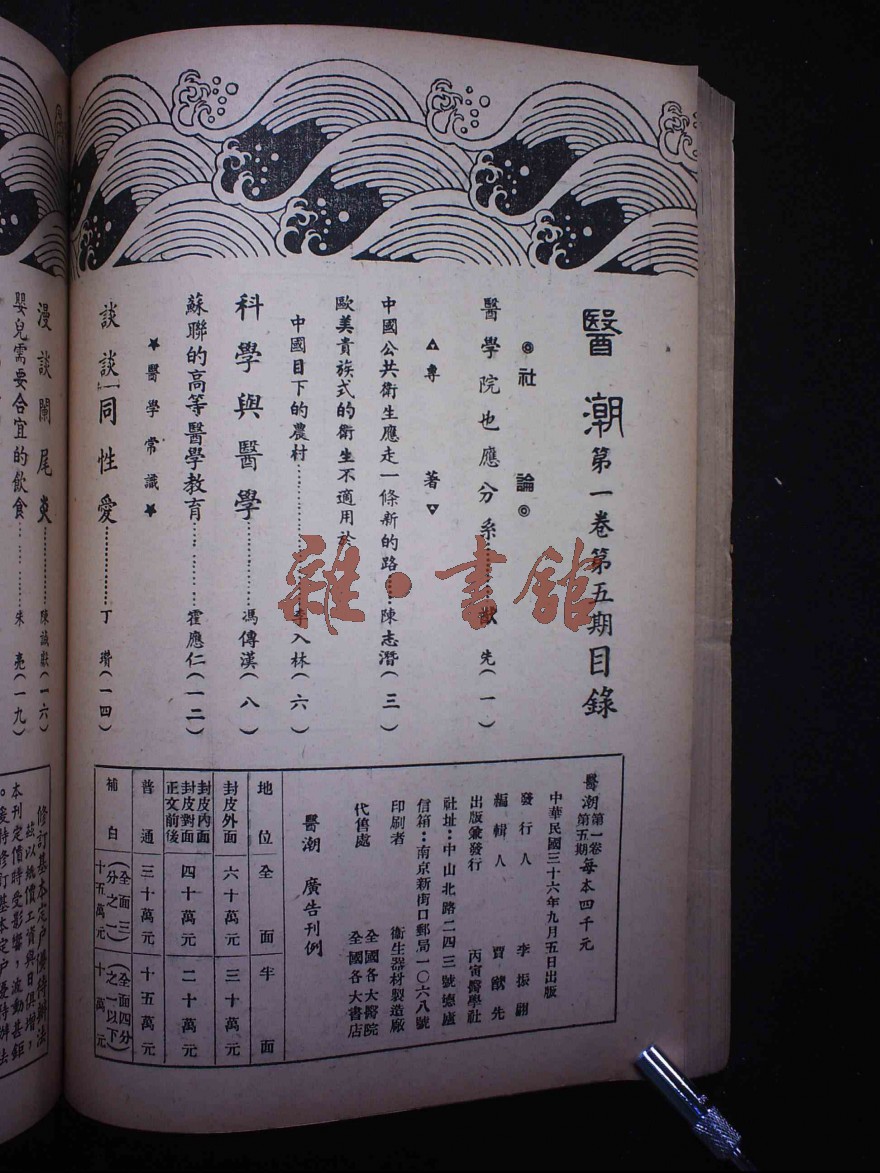 醫潮第一卷第五期目錄
◎社論◎
醫學院也應分系……猷先(一)
△專著▽
中國公共衛生應走一條新的路……陳志潛(三)
歐美貴族式的衛生不適用於
中國目下的農村……李入林(六)
科學與醫學……馮傳漢(八)
蘇聯的高等醫學教育……霍應仁(一二)
★醫學常識★
談談「同性愛……丁瓚(一四)
漫談闌尾炎……陳誠(一六)
嬰兒需要合宜的飲食……朱亮(一九)
醫潮第一卷第五期每本四千元
中華民國三十六年九月五日出版
發行人 李振翩
編輯人 賈猷先
出版兼發行 丙寅醫學社
社址:中山北路二四三號德廬
信箱:南京新街口郵局一〇六八號
印刷者 衛生器材製造廠
代售處 全國各大醫院
全國各大書店
醫潮 廣告刊例
地位 全面 半面
封皮外面 六十萬元 三十萬元
封皮內面 封皮對面 正文前後 四十萬元 二十萬元
普通 三十萬元 十五萬元
補白 (全面三分之一)十五萬元 (全面四分之一以下)十萬元
修訂基本定戶優待辦法
茲以物價工資與日俱增,
本刊定價時受影響,波動甚鉅
。爰特修訂基本定戶優待辦法
雜·書館